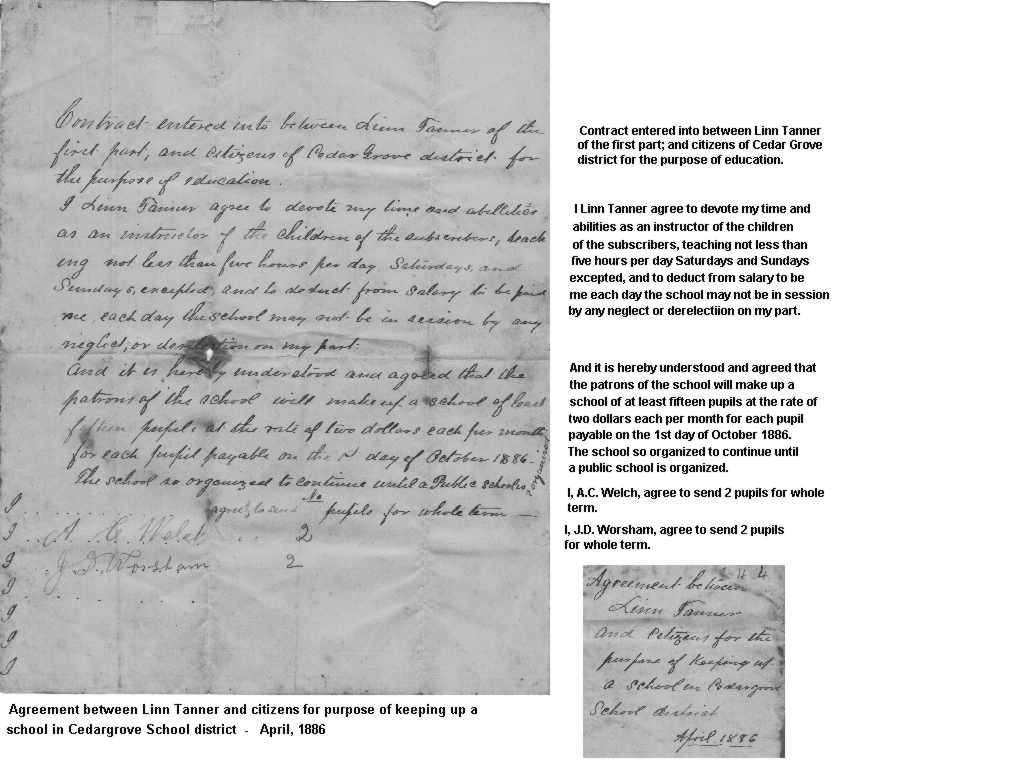 Contract entered into between Linn Tanner of the
first part, and citizens of Cedar Grove district for
the purpose of education.
I Linn Tanner agree to devote my time and abilities
as an instructor of the children of the subscribers, teach
ing not less than five hours per day. Saturdays, and
Sundays, excepted, and to deduct from salary to be paid
me, each day the school may not be in session by any
neglect, or derelection on my part.
And it is hereby understood and agreed that the
patrons of the school will make up a school of least
fifteen pupils at the rate of two dollars each per month
for each pupil payable on the day of October 1886.
The school so organized to continue until a Public school is
organized
agree to send No pupils for whole term
I
I A. C. Welch 2
I J. D. Worsham 2
I
I
I
I
Agreement between Linn Tanner and citizens for purpose of keeping up a
school in Cedargrove School district - April, 1886
Contract entered into between Linn Tanner
of the first part; and citizens of Cedar Grove
district for the purpose of education.
I Linn Tanner agree to devote my time and
abilities as an instructor of the children
of the subscribers, teaching not less than
five hours per day Saturdays and Sundays
excepted, and to deduct from salary to be
me each day the school may not be in session
by any neglect or derelectiion on my part.
And it is hereby understood and agreed that
the patrons of the school will make up a
school of at least fifteen pupils at the rate of
two dollars each per month for each pupil
payable on the 1st day of October 1886.
The school so organized to continue until
a public school is organized.
I, A.C. Welch, agree to send 2 pupils for whole
term.
I, J.D. Worsham, agree to send 2 pupils
for whole term.
Agreement between
Linn Tanner
and Citizens for the
purpose of Keeping up
a school in Cedargrove
School district
April 1886